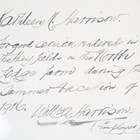 Kathleen M Harrison.
for good service rendered in
the hay fields on the North
Gates farm during the
Summer Vacation of
1916.
Will A Harrison
Employer